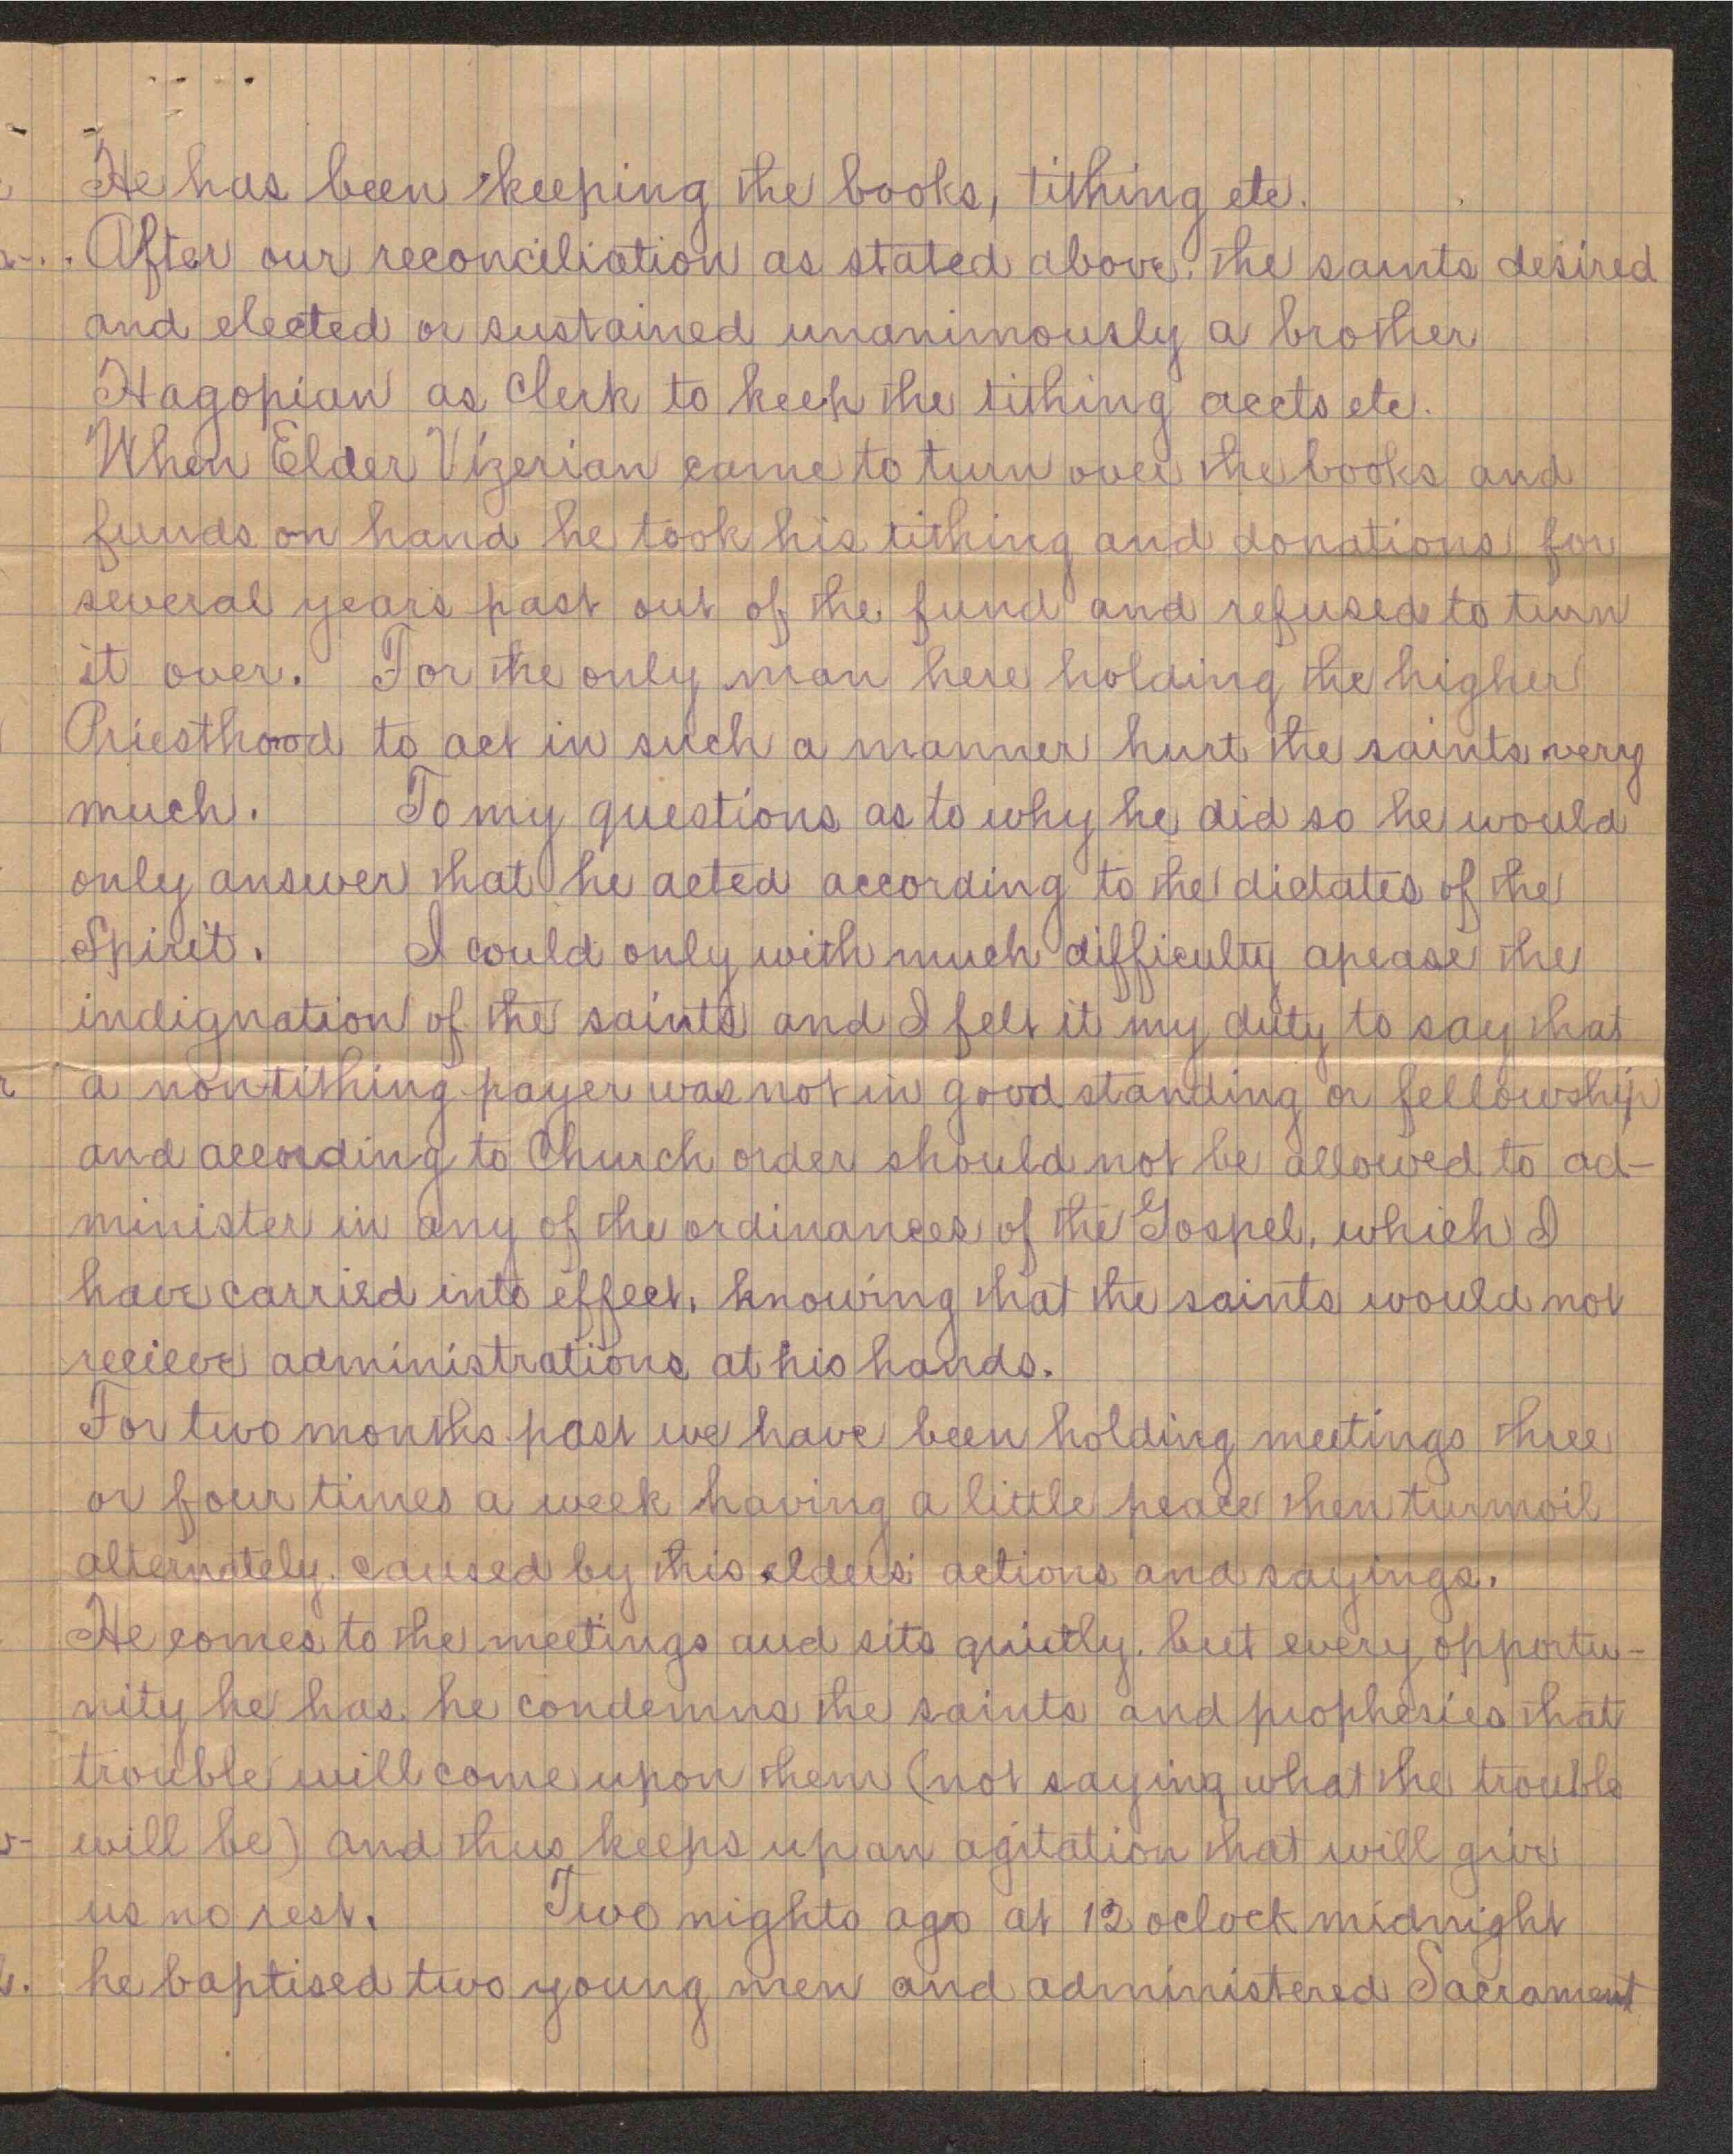 He has been keeping the books, tithing etc.
After our reconciliation as stated above. the saints desired
and elected or sustained unanimously a brother
Hagopian as Clerk to keep the tithing accts etc.
When Elder Vizerian came to turn over the books and
funds on hand he took his tithing and donations for
several years past out of the fund and refused to turn
it over. For the only man here holding the higher
Priesthood to act in such a manner hurt the saints very
much. To my questions as to why he did so he would
only answer that he acted according to the dictates of the
Spirit. I could only with much difficulty apease the
indignation of the saints and I felt it my duty to say that
a non-tithing payer was not in good standing or fellowship
and according to Church order should not be allowed to ad-
minister in any of the ordinances of the Gospel, which I
have carried into effect, knowing that the saints would not
recieve administrations at his hands.
For two months past we have been holding meetings three
or four times a week having a little peace then turmoil
alternately. caused by this elders' actions and sayings.
He comes to the meetings and sits quietly. but every opportu-
nity he has he condemns the saints and prophesies that
trouble will come upon them (not saying what the trouble
will be) and thus keeps up an agitation that will give
us no rest. Two nights ago at 12 oclock midnight
he baptised two young men and administered Sacrament